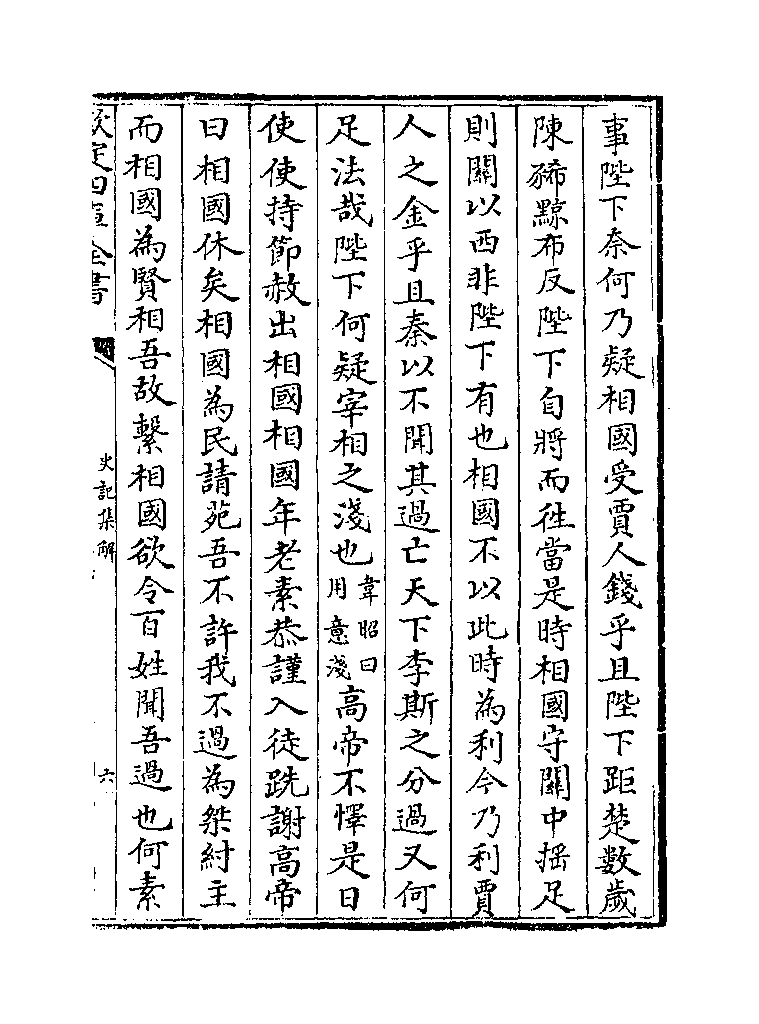 事陛下奈何乃疑相國受賈人錢乎且陛下距楚數歲
陳豨黥布反陛下自將而往當是時相國守關中摇足
則關以西非陛下有也相國不以此時為利今乃利賈
人之金乎且秦以不聞其過亡天下李斯之分過又何
足法哉陛下何疑宰相之淺也韋昭曰用意淺高帝不懌是日
使使持節赦出相國相國年老素恭謹入徒跣謝高帝
曰相國休矣相國為民請苑吾不許我不過為桀紂主
而相國為賢相吾故繫相國欲令百姓聞吾過也何素
欽定四庫全書
史記集解
六